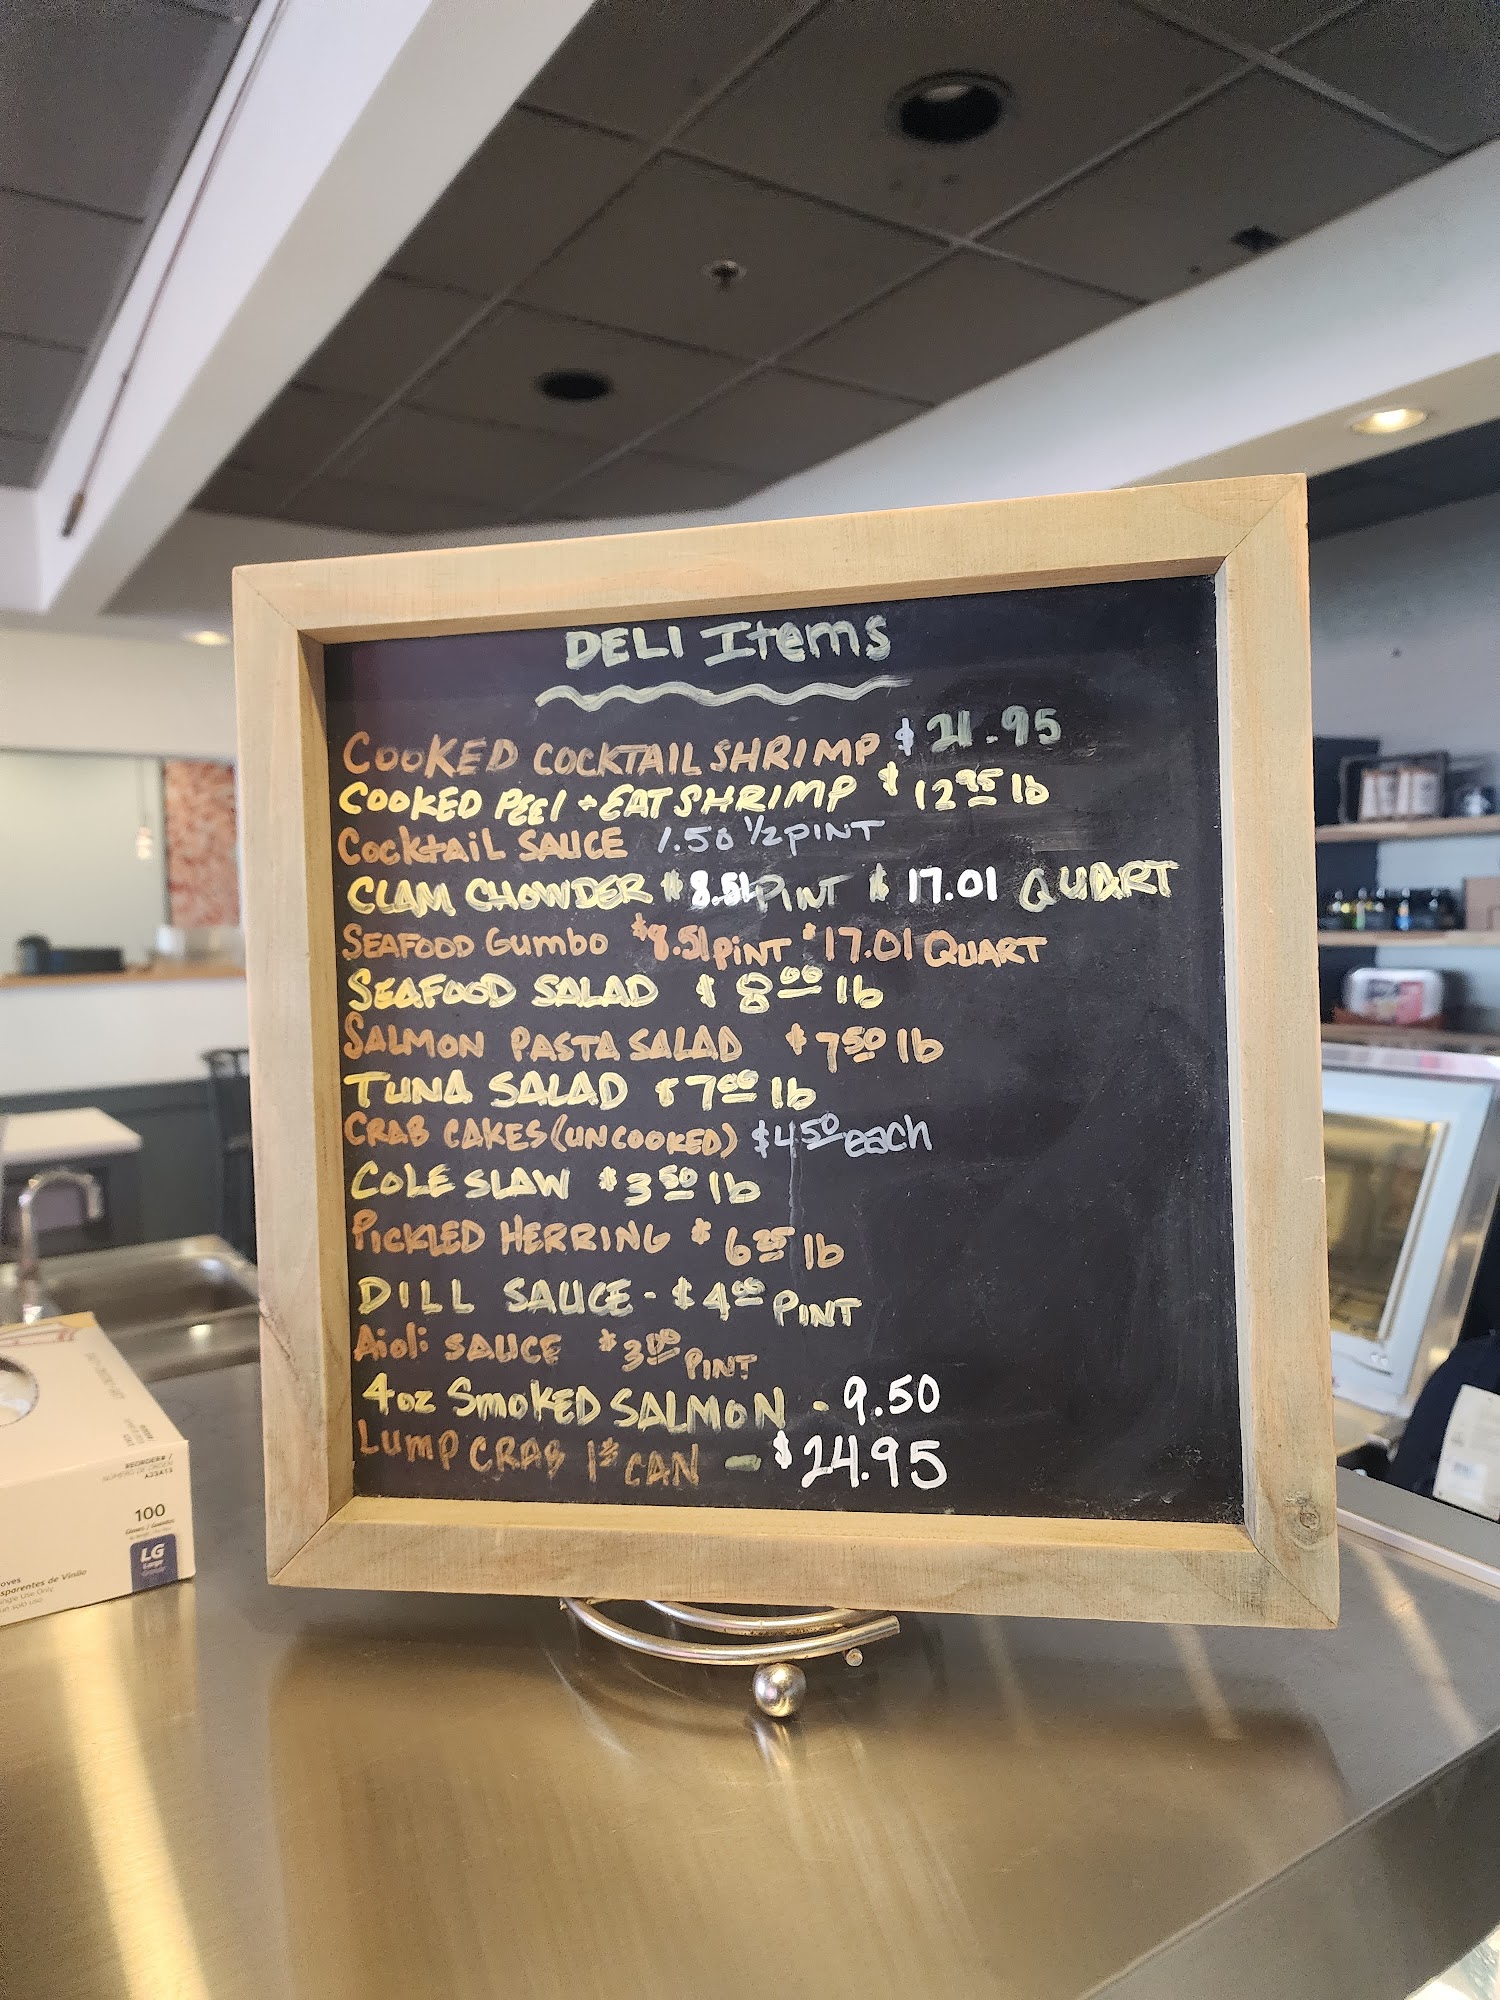 DELI Items
COOKED COCKTAIL SHRIMP $ 21.95
COOKED PEEl + EAT SHRIMP $ 12 95 lb
COCKtAiL SAUCE 1.50 1/2 PINT
CLAM CHOWDER $ 8.51 PINT $ 17.01 QUART
SEAFOOD GumBO $8.51 PiNT $17.01 QUART
SEAFOOD SALAD $ 8 00 lb
SALMON PASTA SALAD $ 7 50 lb
TUNA SALAD $ 7 00 lb
CRAB CAKES (UNCOOKED) $4 50 each
COLE SLAW $ 3 50 lb
PiCKLED HERRING $ 6 25 lb
DILL SAUCE - $ 4 00 PINT
Aioli SAUCE $ 3 00 PINT
4oz SmOKED SALMON - 9.50
LUMP CRAB 1# CAN - $24.95
REORDER# /
NÚMERO DE ORDEN
A23A13
100
Gloves / Guantes
LG
Large
oves
sparentes de Vinilo
ngle Use Only
un solo uso